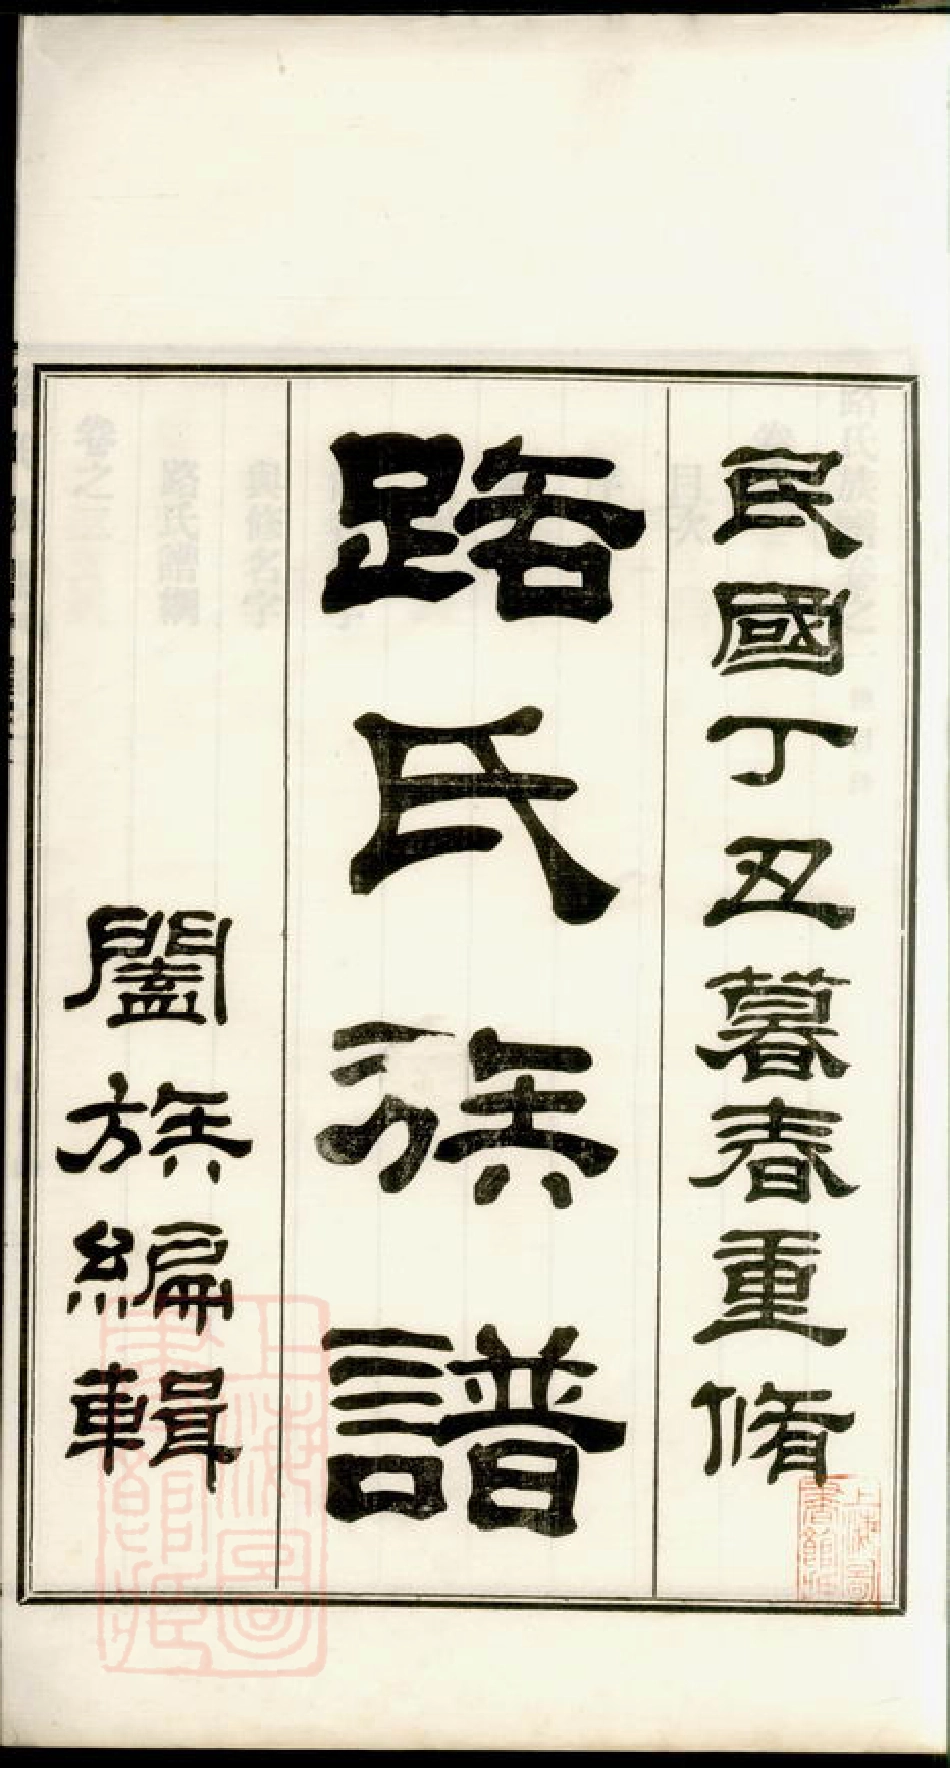 民國丁丑暮春重脩
路氏族譜
闔族編輯
上海圖書館藏
上海圖書館藏